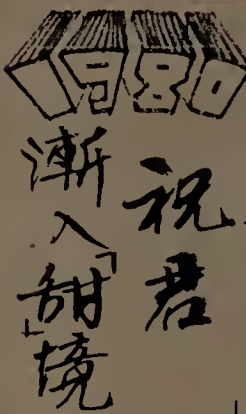 1980
祝君
漸入「甜」境